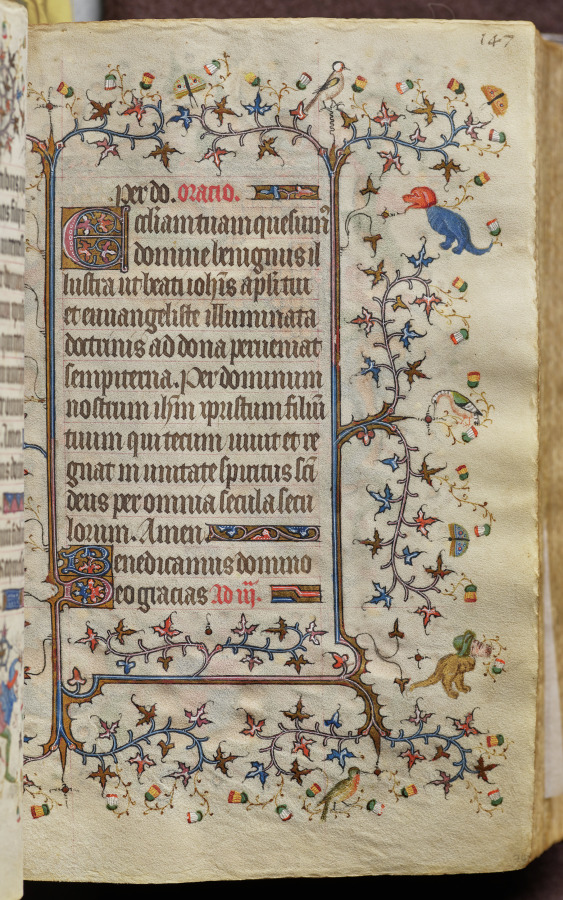 147
per do. oratio.
Eccl̄iam tuam quesum̄
domine benignus il
lustra ut beati ioh̄is apl̄i tui
et euuangeliste illuminata
doctrinis ad dona perueniat
sempiterna. Per dominum
nostrum ih̄m xpristum filiū
tuum qui tecum uiuit et re
gnat in unitate spiritus sc̄i
deus per omnia secula secu
lorum. Amen.
Benedicamus domino
Deo gracias Ad iij.